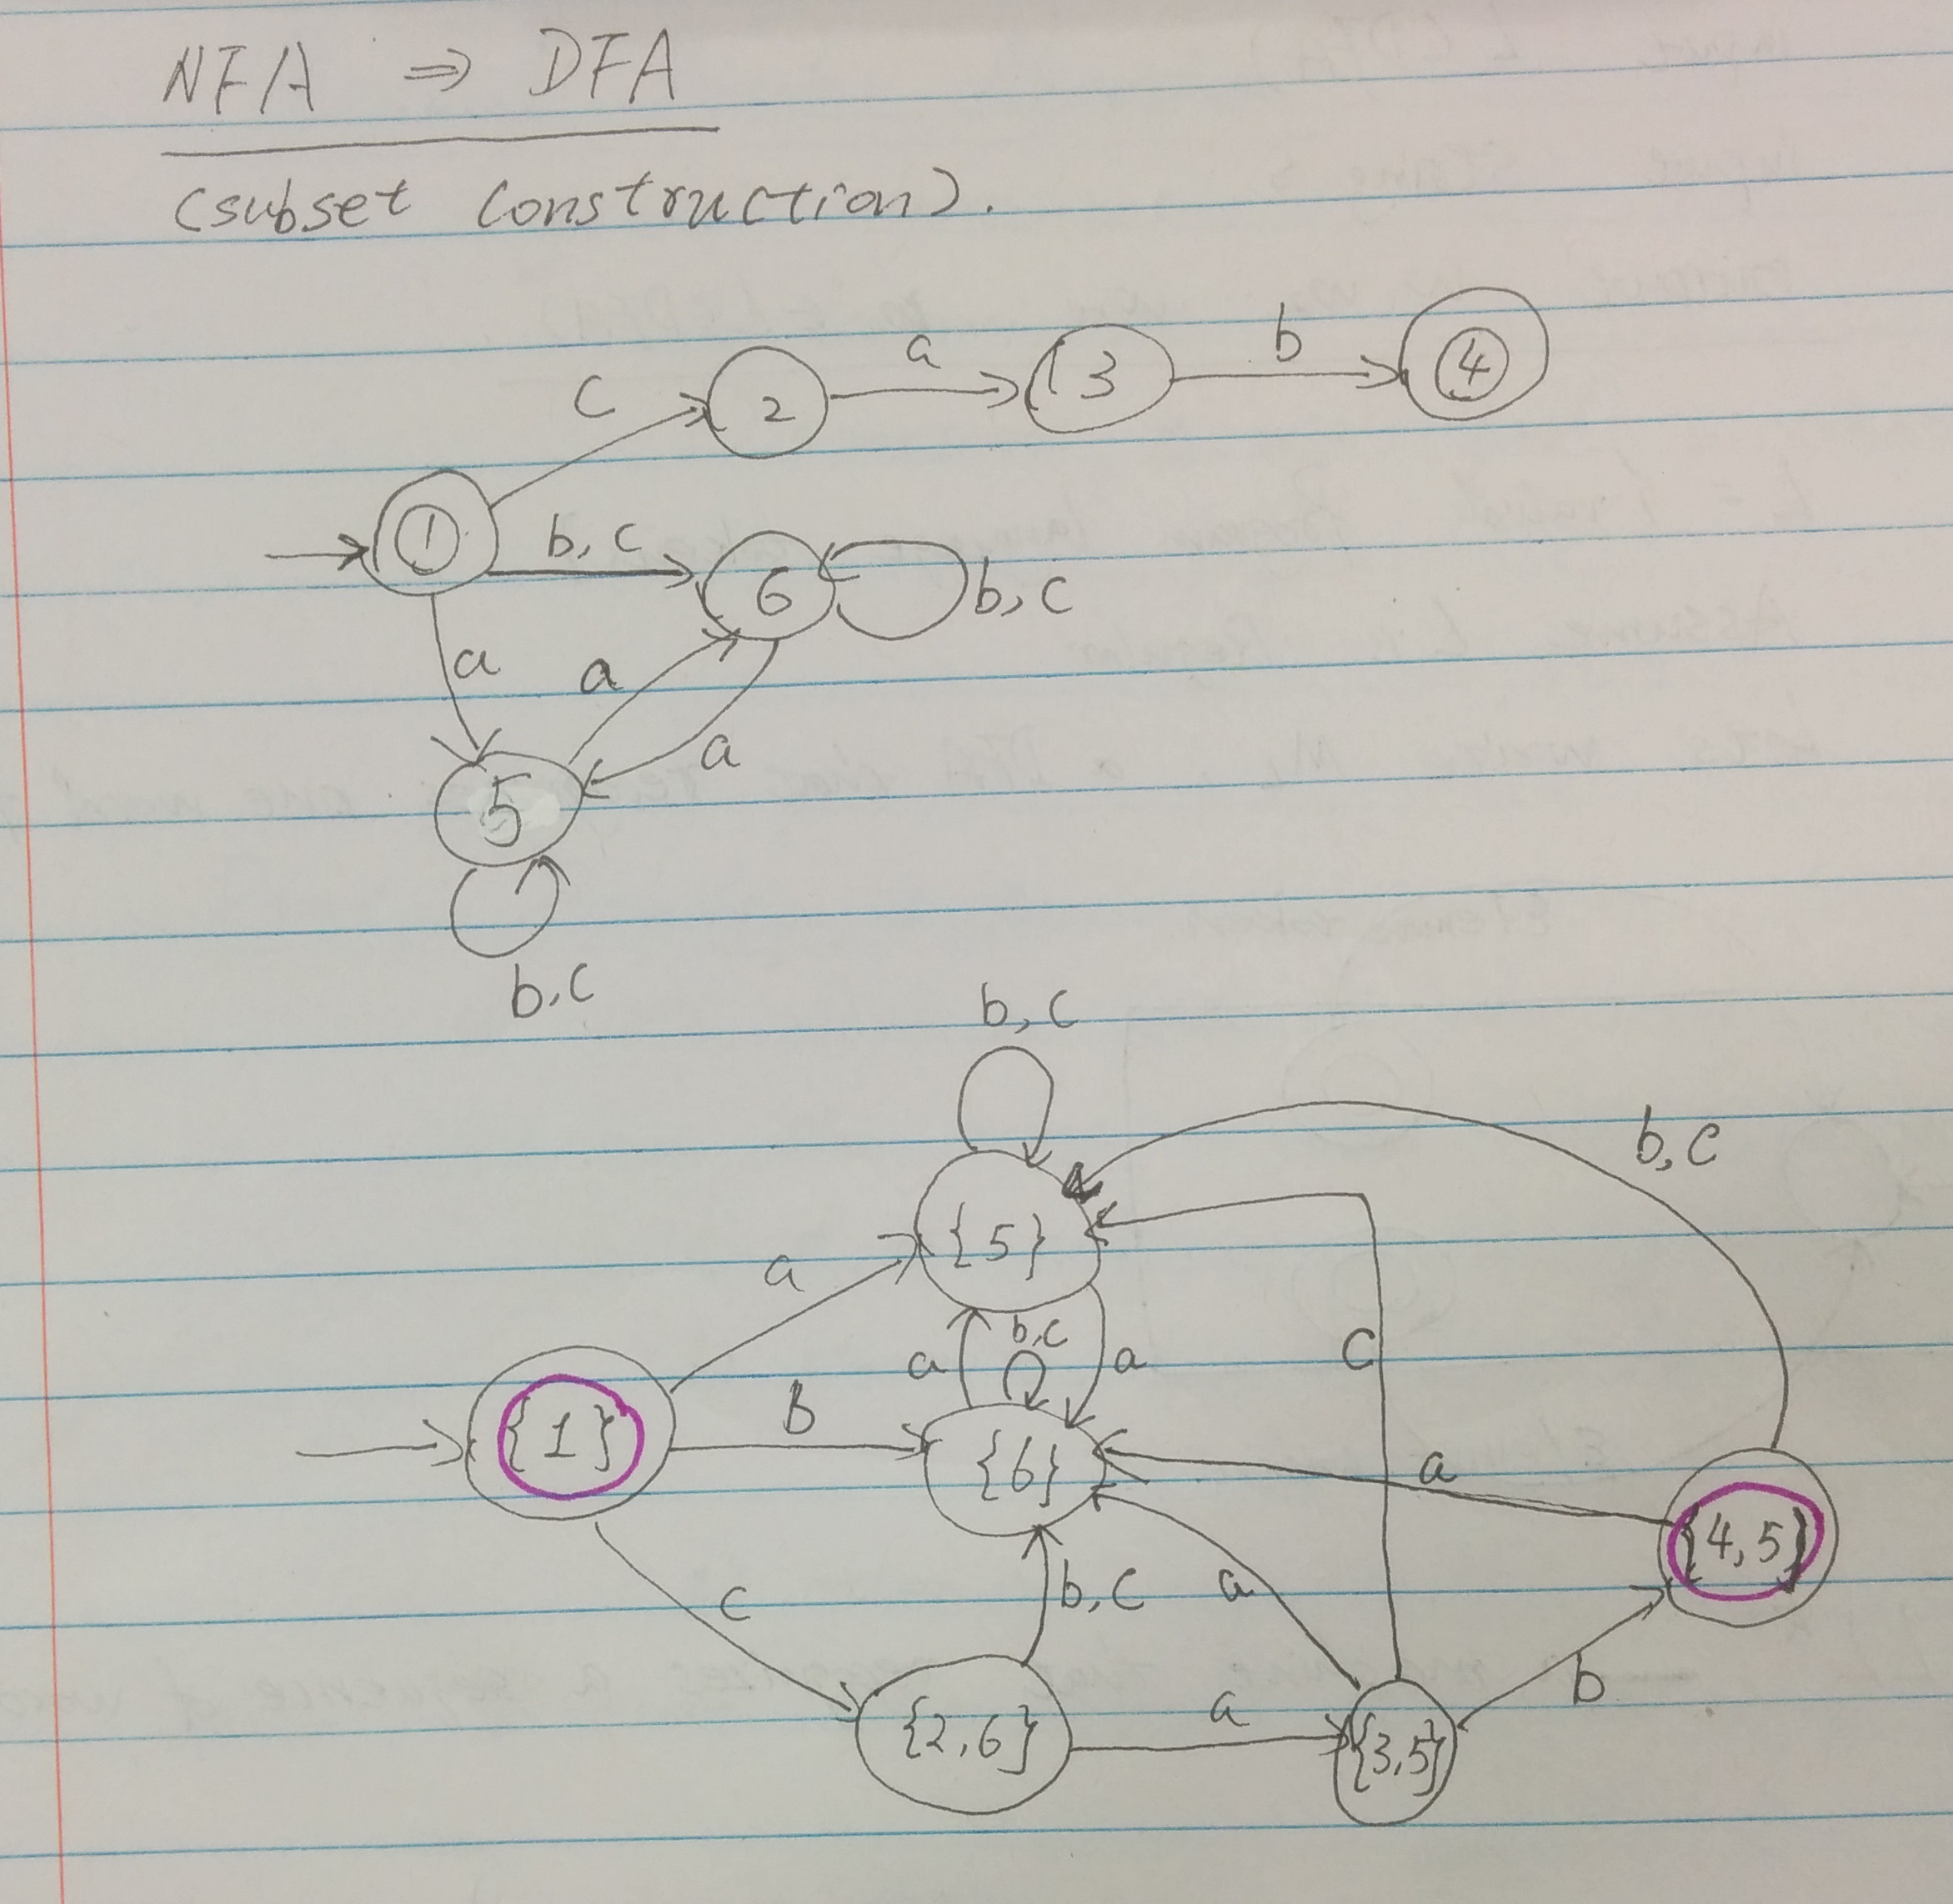 NFA ⇒ DFA
(subset construction).
c
2
a
3
b
4
1
b, c
6
b, c
a
a
a
5
b, c
b, c
b, c
{5}
a
b, c
a
a
c
{1}
B
{6}
a
{4,5}
c
b, c
a
b
{2,6}
a
{3,5}